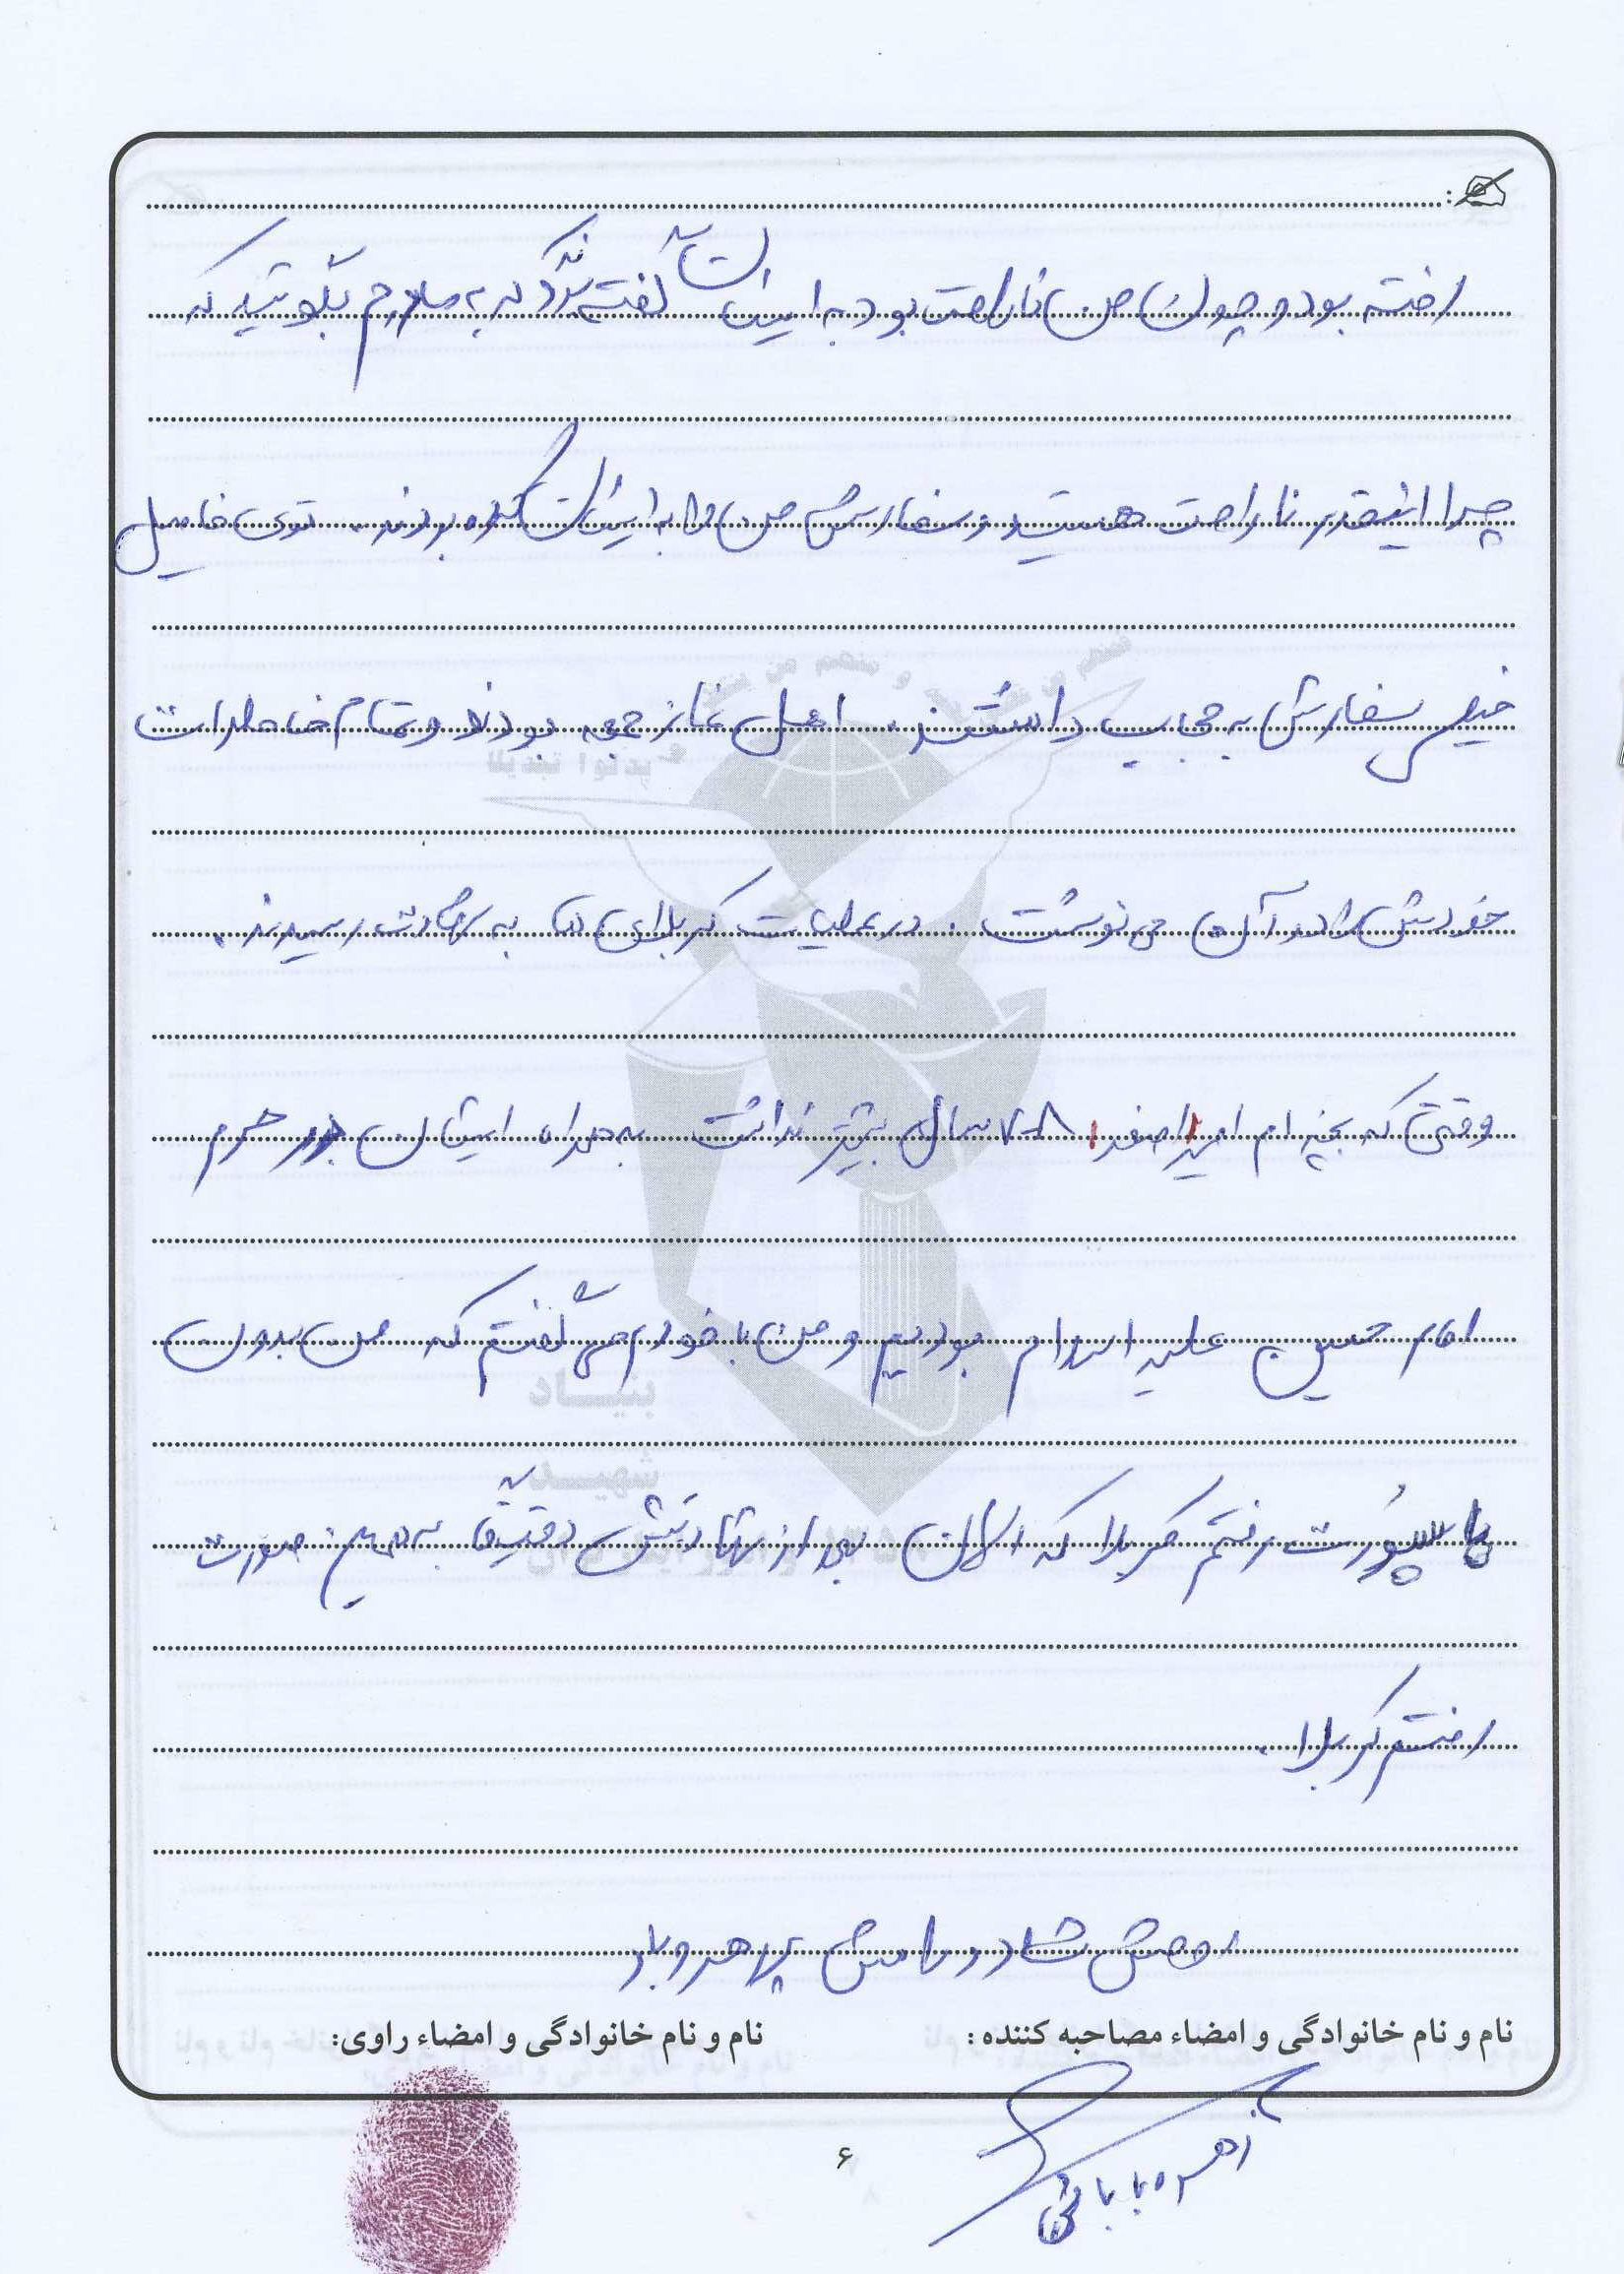 رفته بود و چون من ناراحت بود به ایشان گفته بود که به مادرم بگوئید که
چرا اینقدر ناراحت هستید و سفارش من را به ایشان کرده بودند. توی فامیل
خیلی سفارش به حجاب داشتند. اهل نماز جمعه بودند و تمام خاطرات
خودش را در آن می نوشت. در عملیات کربلای به شهادت رسیدند.
وقتی که بچه ام امیر اصغر ۷-۸ سال بیشتر نداشت به همراه ایشان در حرم
امام حسین علیه السلام بودیم و من با خودم می گفتم که من بدون
پاسپورت رفتم کربلا که الان بعد از شهادتش دقیقا به همین صورت
رفتم کربلا.
روحش شاد و راهش پر رهرو باد
نام و نام خانوادگی و امضاء مصاحبه کننده:
نام و نام خانوادگی و امضاء راوی:
زهره بابائی
۶
بنیاد
شهید